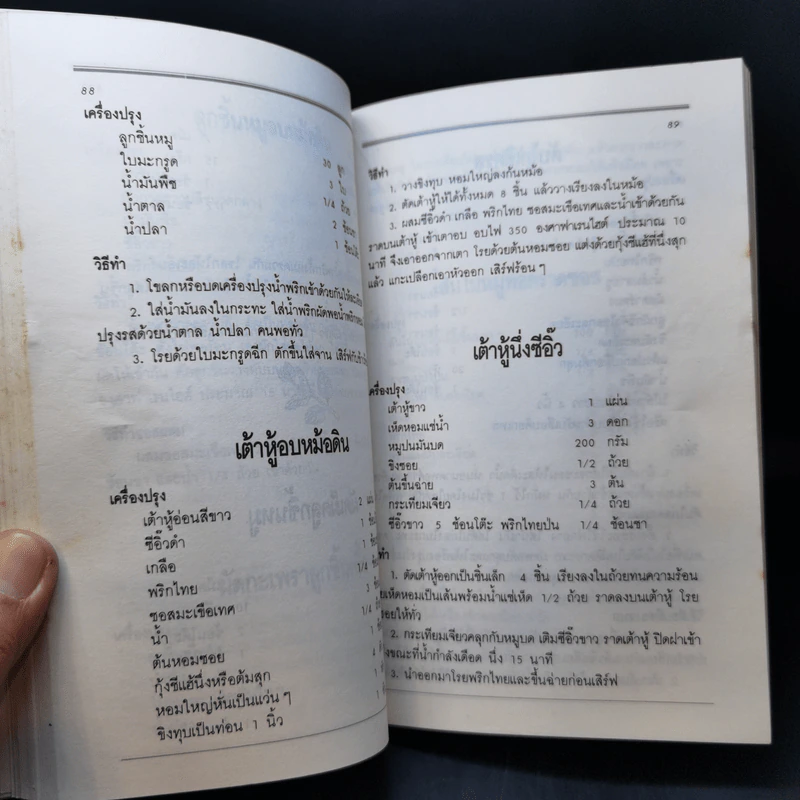 88
เครื่องปรุง
ลูกชิ้นหมู 30 ลูก
ใบมะกรูด 3 ใบ
น้ำมันพืช 1/4 ถ้วย
น้ำตาล 2
น้ำปลา 1
วิธีทำ
1. โขลกหรือบดเครื่องปรุงน้ำพริกเข้าด้วยกันให้
2. ใส่น้ำมันลงในกระทะ ใส่น้ำพริกผัดพอน้ำพริก
ปรุงรสด้วยน้ำตาล น้ำปลา คนพอทั่ว
3. โรยด้วยใบมะกรูดฉีก ตักขึ้นใส่จาน เสิร์ฟกับ
เต้าหู้อบหม้อดิน
เครื่องปรุง
เต้าหู้อ่อนสีขาว 2
ซีอิ๊วดำ 1
เกลือ 1/4
พริกไทย
ซอสมะเขือเทศ 3
น้ำ 1/4
ต้นหอมซอย
กุ้งชีแฮ้นึ่งหรือต้มสุก
หอมใหญ่หั่นเป็นแว่น ๆ
ขิงทุบเป็นท่อน 1 นิ้ว
89
วิธีทำ
1. วางขิงทุบ หอมใหญ่ลงก้นหม้อ
2. ตัดเต้าหู้ให้ได้ทั้งหมด 8 ชิ้น แล้ววางเรียงลงในหม้อ
3. ผสมซีอิ๊วดำ เกลือ พริกไทย ซอสมะเขือเทศและน้ำเข้าด้วยกัน
ราดบนเต้าหู้ เข้าเตาอบ อบไฟ 350 องศาฟาเรนไฮต์ ประมาณ 10
นาที จึงเอาออกจากเตา โรยด้วยต้นหอมซอย แต่งด้วยกุ้งชีแฮ้ที่นึ่งสุก
แล้ว แกะเปลือกเอาหัวออก เสิร์ฟร้อน ๆ
เต้าหู้นึ่งซีอิ๊ว
เครื่องปรุง
เต้าหู้ขาว 1 แผ่น
เห็ดหอมแช่น้ำ 3 ดอก
หมูปนมันบด 200 กรัม
ขิงซอย 1/2 ถ้วย
ต้นขึ้นฉ่าย 3 ต้น
กระเทียมเจียว 1/4 ถ้วย
ซีอิ๊วขาว 5 ช้อนโต๊ะ พริกไทยป่น 1/4 ช้อนชา
ทำ
1. ตัดเต้าหู้ออกเป็นชิ้นเล็ก 4 ชิ้น เรียงลงในถ้วยทนความร้อน
เห็ดหอมเป็นเส้นพร้อมน้ำแช่เห็ด 1/2 ถ้วย ราดลงบนเต้าหู้ โรย
ซอยให้ทั่ว
2. กระเทียมเจียวคลุกกับหมูบด เติมซีอิ๊วขาว ราดเต้าหู้ ปิดฝาเข้า
ขณะที่น้ำกำลังเดือด นึ่ง 15 นาที
3. นำออกมาโรยพริกไทยและขึ้นฉ่ายก่อนเสิร์ฟ